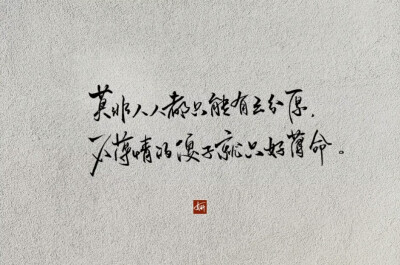 莫非人人都只能有三分厚，
不薄情的傻子就只好薄命。